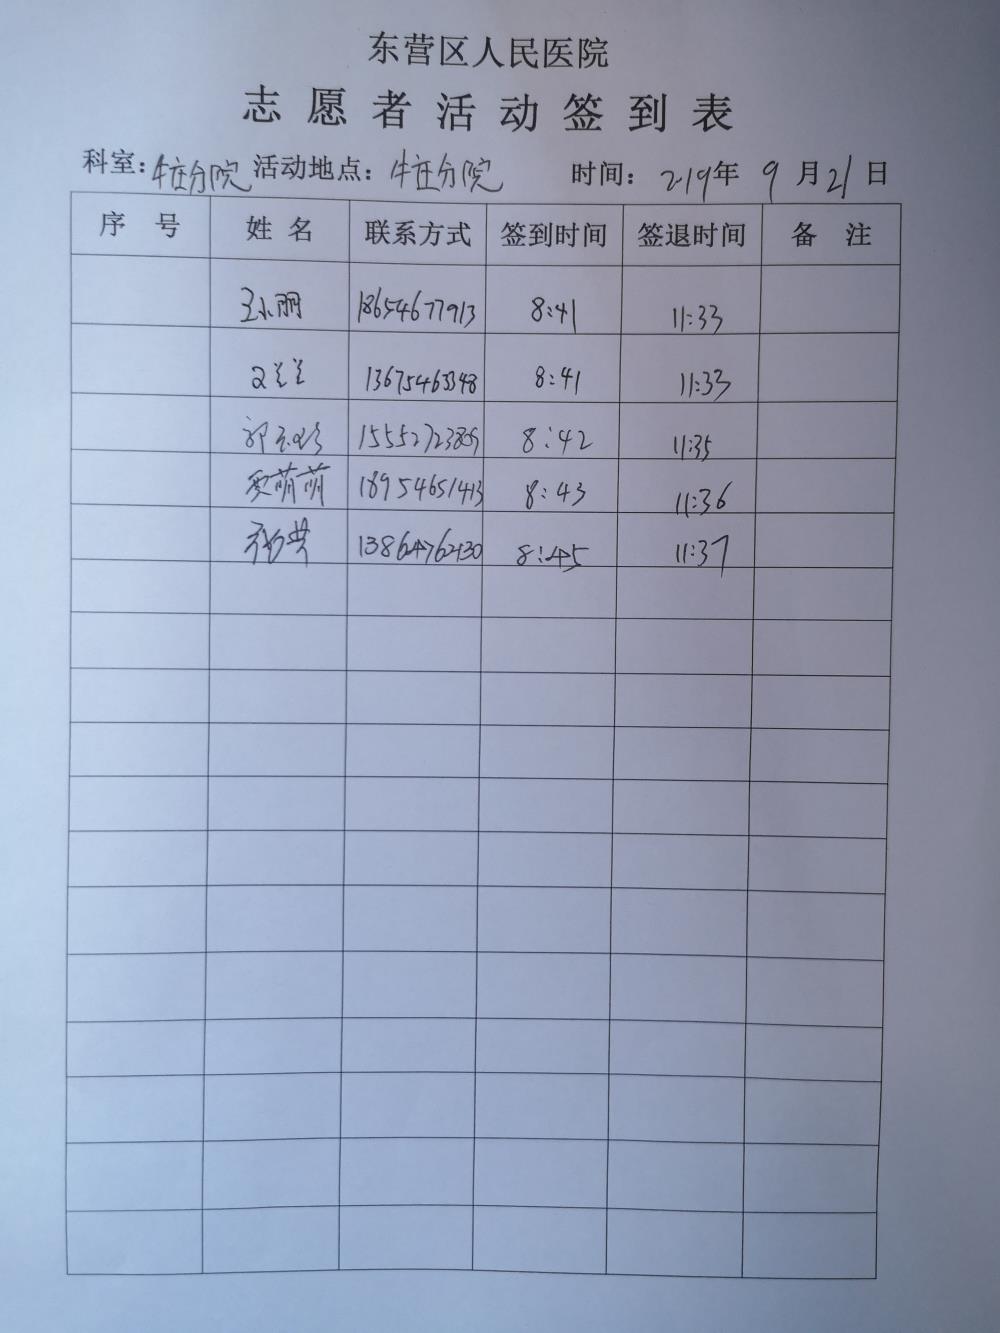 东营区人民医院
志愿者活动签到表
科室：牛庄分院 活动地点：牛庄分院 时间：2019年9月21日
序号 姓名 联系方式 签到时间 签退时间 备注
王小丽 18654677913 8:41 11:33
兰兰 13675463348 8:41 11:33
郭 8:42 11:35
贾萌萌 18954651413 8:43 11:36
13864762430 8:45 11:37